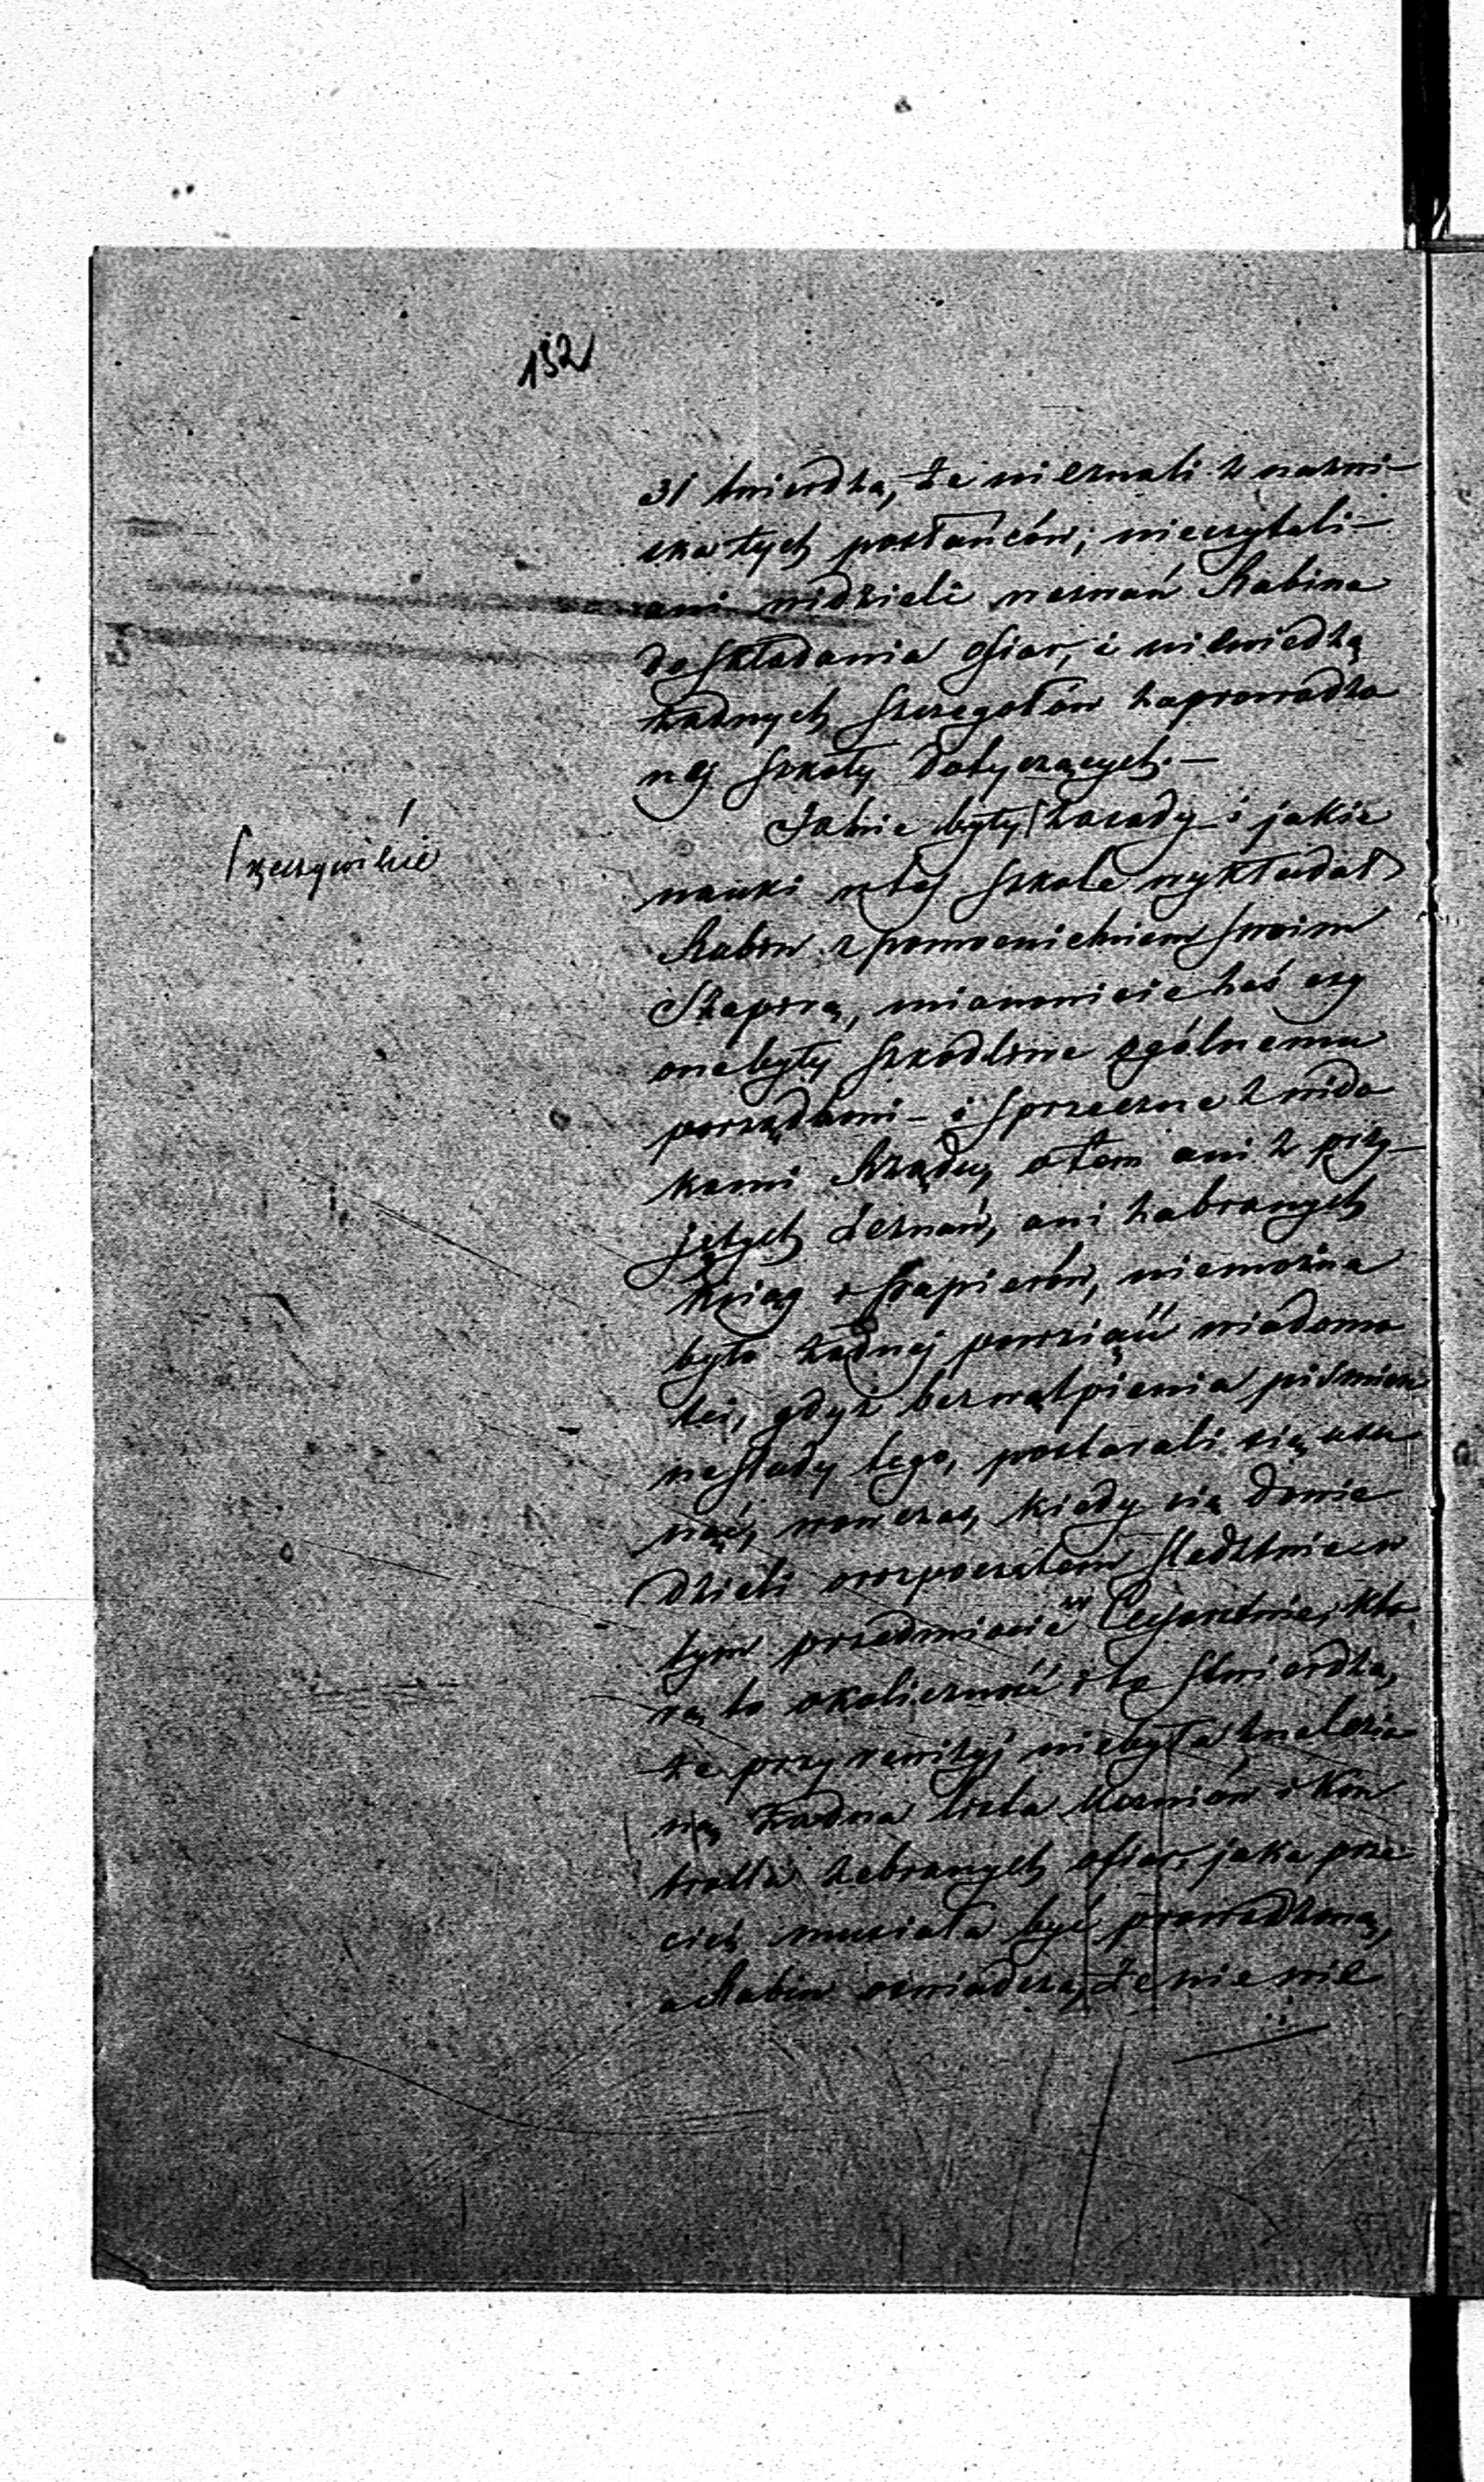 132
31 twierdzą, że nieznali z nazwi-
ska tych posłańców, nieczytali-
ani widzieli wezwań Rabina
do składania ofiar, i niewiedzą
żadnych szczegołów zaprowadzo
nej szkoły dotyczących.—
rzeczywiście
Jakie były zasady i jakie
nauki w tej szkole wykładał
Rabin z pomocnikiem swoim
Szapsią, mianowicie zaś czy
one były szkodliwe ogólnemu
porządkowi- i sprzeczne z wido
kami Rządu, o tem ani z przy-
jętych zeznań, ani zabranych
Xiąg i papierów, niemożna
było żadnej powziąść wiadomo
ści, gdyż bezwątpienia piśmien
ne ślady tego, postarali się usu
nąć, wówczas, kiedy się dowie
dzieli orozpoczętem śledztwie w
tym przedmiocie w Cesarstwie, któ
rą to okoliczność i to stwierdza,
że przy rewizyi niebyła znalezio
ną żadna lista Uczniów i Kon
trolla zebranych ofiar, jaka prze
cież musiała być prowadzoną,
a Rabin oświadcza, że nie wie